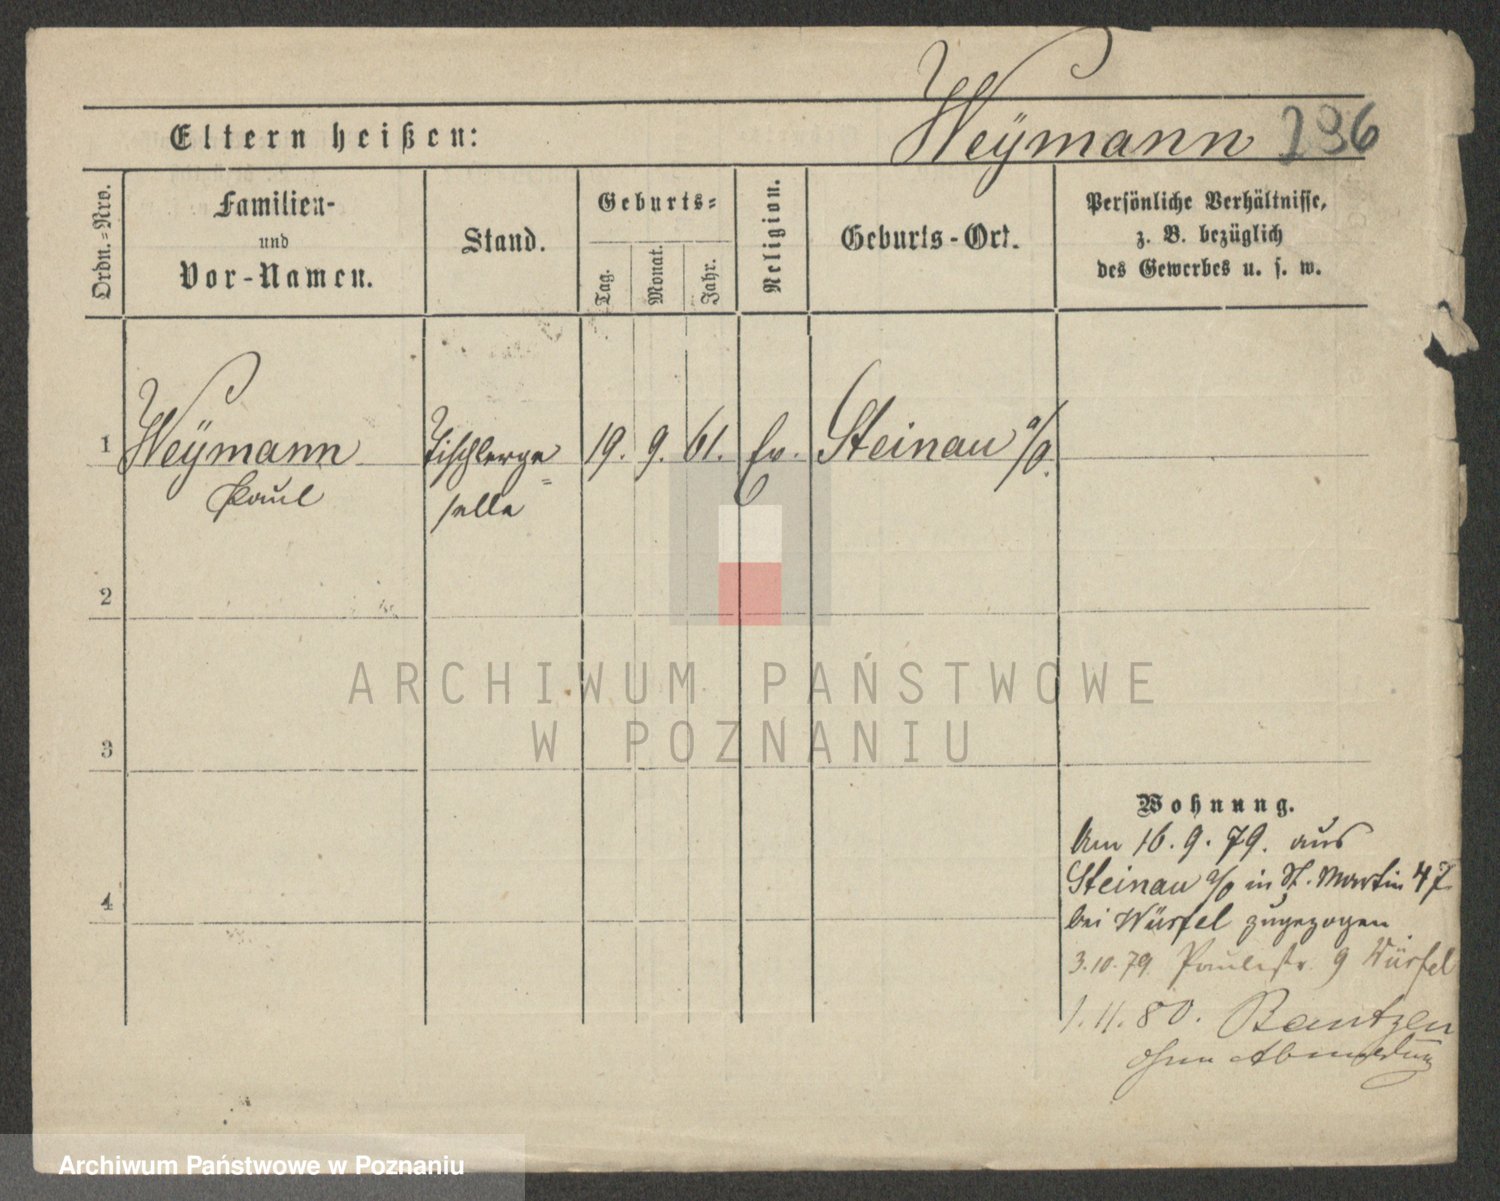 Weÿmann 296
Eltern heißen:
Ordn.-Nro.
Familien-
und
Vor-Namen.
Stand.
Geburts-
Tag.
Monat.
Jahr.
Religion.
Geburts-Ort.
Persönliche Verhältnisse,
z. B. bezüglich
des Gewerbes u. s. w.
1 Weÿmann Tischlerge= 19. 9. 61. Ev. Steinau a/O.
Paul selle
2
3
4
ARCHIWUM PAŃSTWOWE
W POZNANIU
Wohnung.
Am 16. 9. 79. aus
Steinau a/O in St. Martin 47
bei Würfel zugezogen
3.10.79 Paulistr. 9 Würfel
1. 11. 80. Bentzen
ohne Abmeldung
Archiwum Państwowe w Poznaniu